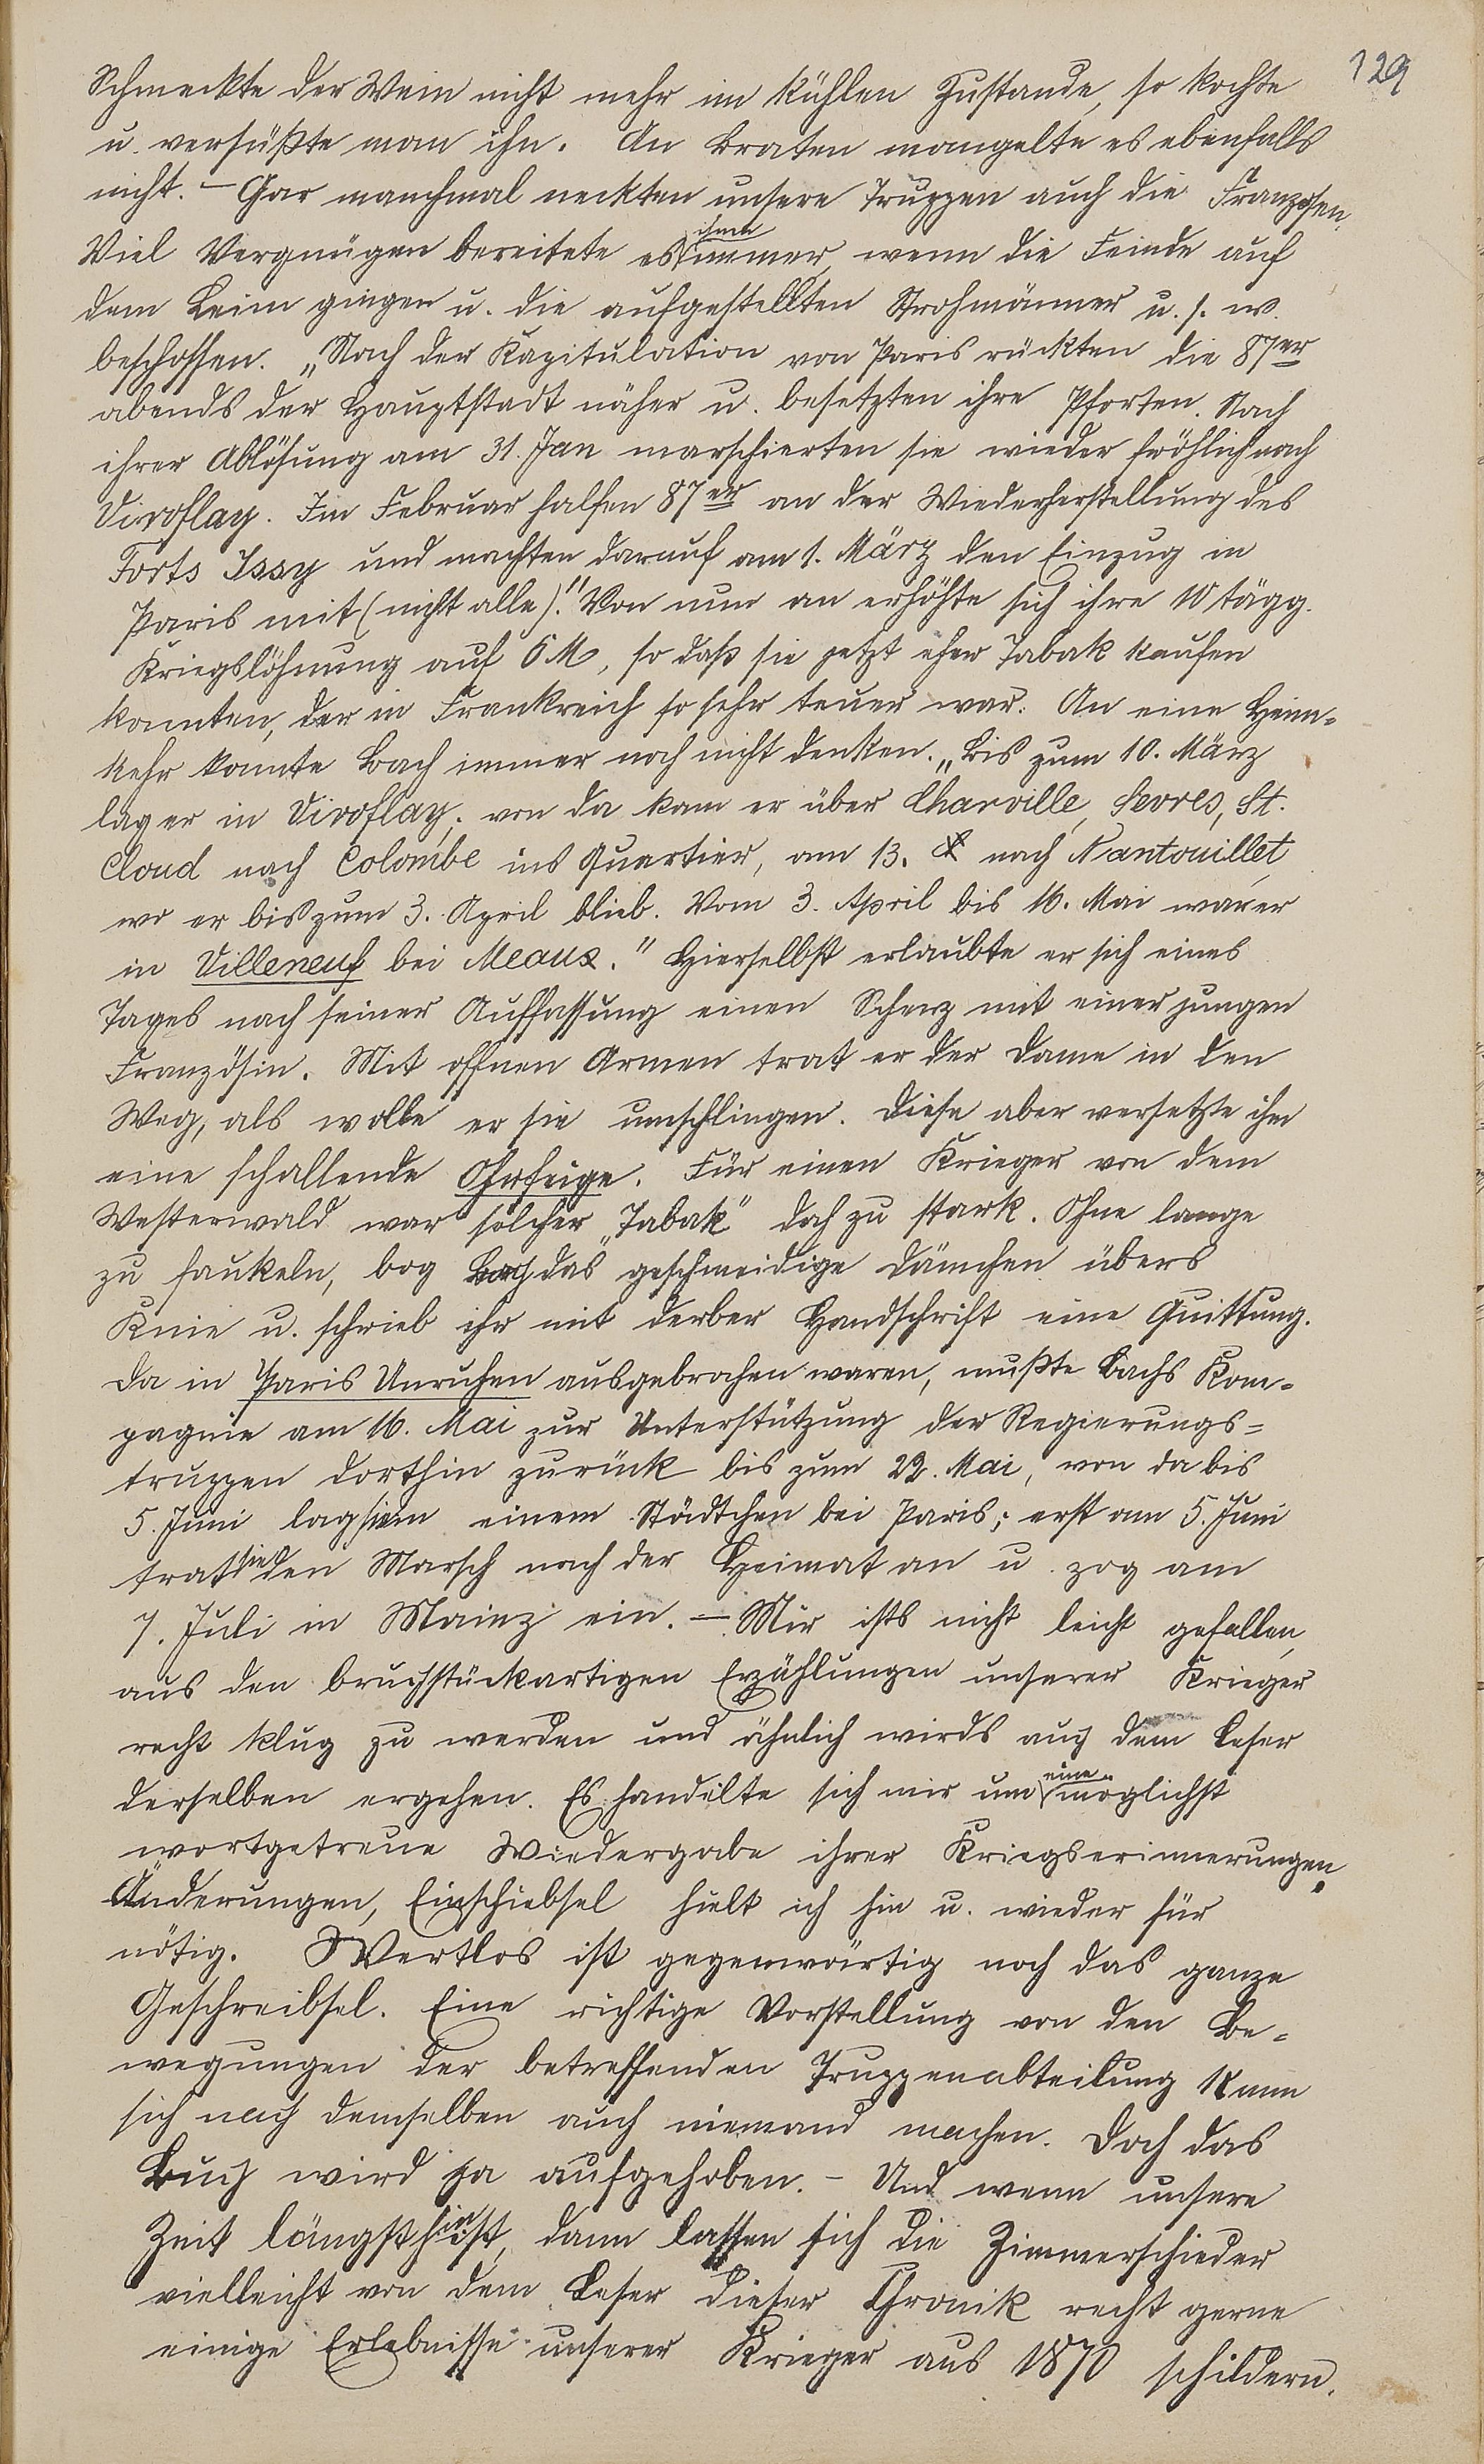 129
Schmeckte der Wein nicht mehr im kühlen Zustande, so kochte
u. versüßte man ihn. An Braten mangelte es ebenfalls
nicht. – Gar manchmal neckten unsere Truppen auch die Franzosen.
Viel Vergnügen bereitete es ihnen immer, wenn die Feinde auf
dem Leim gingen u. die aufgestellten Strohmänner u. s. w.
beschossen. „Nach der Kapitulation von Paris rückten die 87er
abends der Hauptstadt näher u. besetzten ihre Pforten. Nach
ihrer Ablösung am 31. Jan marschierten sie wieder fröhlich nach
Viroflay. Im Februar halfen 87er an der Wiederherstellung des
Forts Issy und machten darauf am 1. März den Einzug in
Paris mit (nicht alle)." Von nun an erhöhte sich ihre 10 tägg.
Kriegslöhnung auf 6 M, so daß sie jetzt eher Tabak kaufen
konnten, der in Frankreich so sehr teuer war. An eine Heim-
kehr konnte Bach immer noch nicht denken. „Bis zum 10. März
lag er in Viroflay; von da kam er über Charville, Sevres, St.
Cloud nach Colombe ins Quartier, am 13. nach Nantouillet,
wo er bis zum 3. April blieb. Vom 3. April bis 16. Mai war er
in Villeneuf bei Meaux." Hierselbst erlaubte er sich eines
Tages nach seiner Auffassung einen Scherz mit einer jungen
Französin. Mit offnen Armen trat er der Dame in den
Weg, als wolle er sie umschlingen. Diese aber versetzte ihm
eine schallende Ohrfeige. Für einen Krieger von dem
Westerwald war solcher „Tabak" doch zu stark. Ohne lange
zu faukeln, bog Bach das geschmeidige Dämchen übers
Knie u. schrieb ihr mit derber Handschrift eine Quittung.
Da in Paris Unruhen ausgebrochen waren, mußte Bachs Kom-
pagnie am 16. Mai zur Unterstützung der Regierungs-
truppen dorthin zurück bis zum 22. Mai, von da bis
5. Juni lag sie in einem Städtchen bei Paris; erst am 5. Juni
trat sie den Marsch nach der Heimat an u. zog am
7. Juli in Mainz ein. – Mir ists nicht leicht gefallen,
aus den bruchstückartigen Erzählungen unserer Krieger
recht klug zu werden und ähnlich wirds auch dem Leser
derselben ergehen. Es handelte sich mir um eine möglichst
wortgetreue Wiedergabe ihrer Kriegserinnerungen.
Änderungen, Einschiebsel hielt ich hin u. wieder für
nötig. Wertlos ist gegenwärtig noch das ganze
Geschreibsel. Eine richtige Vorstellung von den Be-
wegungen der betreffenden Truppenabteilung kann
sich nach demselben auch niemand machen. Doch das
Buch wird ja aufgehoben. – Und wenn unsere
Zeit längst hin ist, dann lassen sich die Zimmerschieder
vielleicht von dem Leser dieser Chronik recht gerne
einige Erlebnisse unserer Krieger aus 1870 schildern.